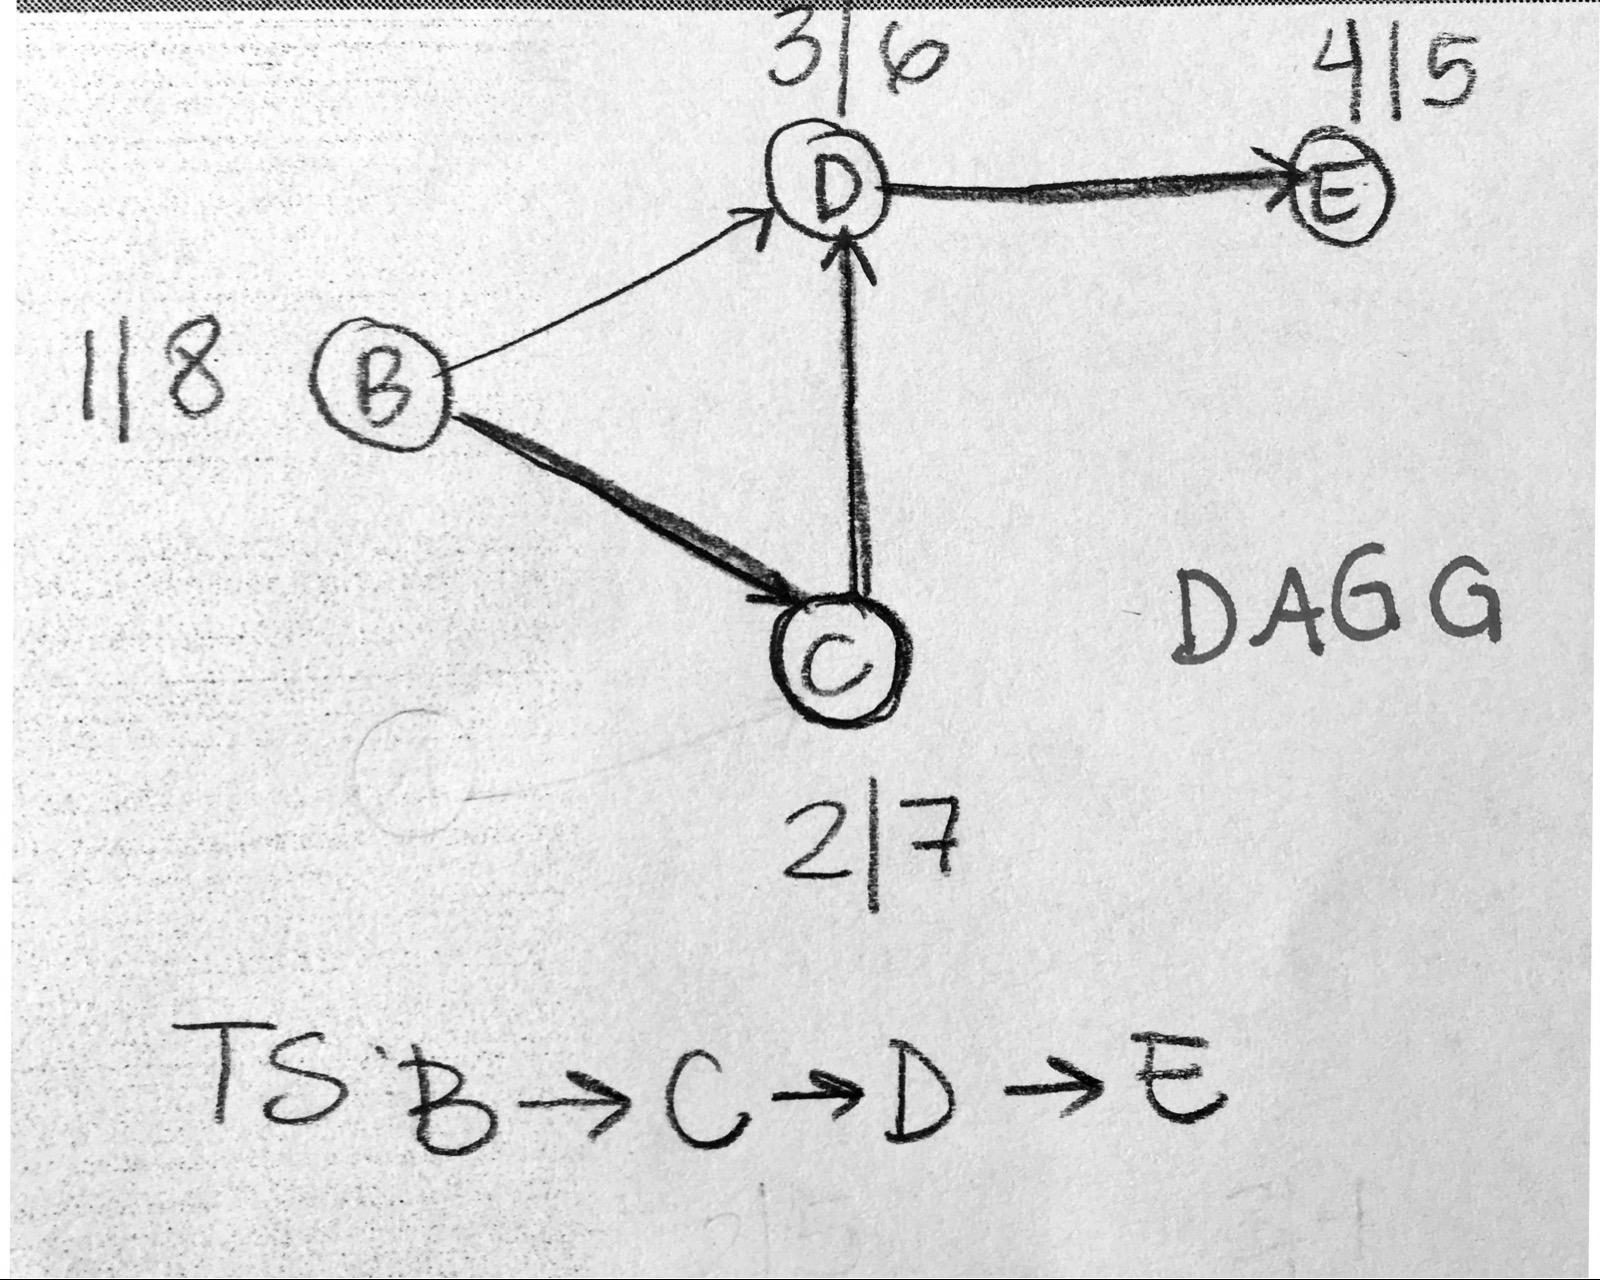 3|6
4|5
D
E
1|8
B
C
DAG G
2|7
TS: B → C → D → E